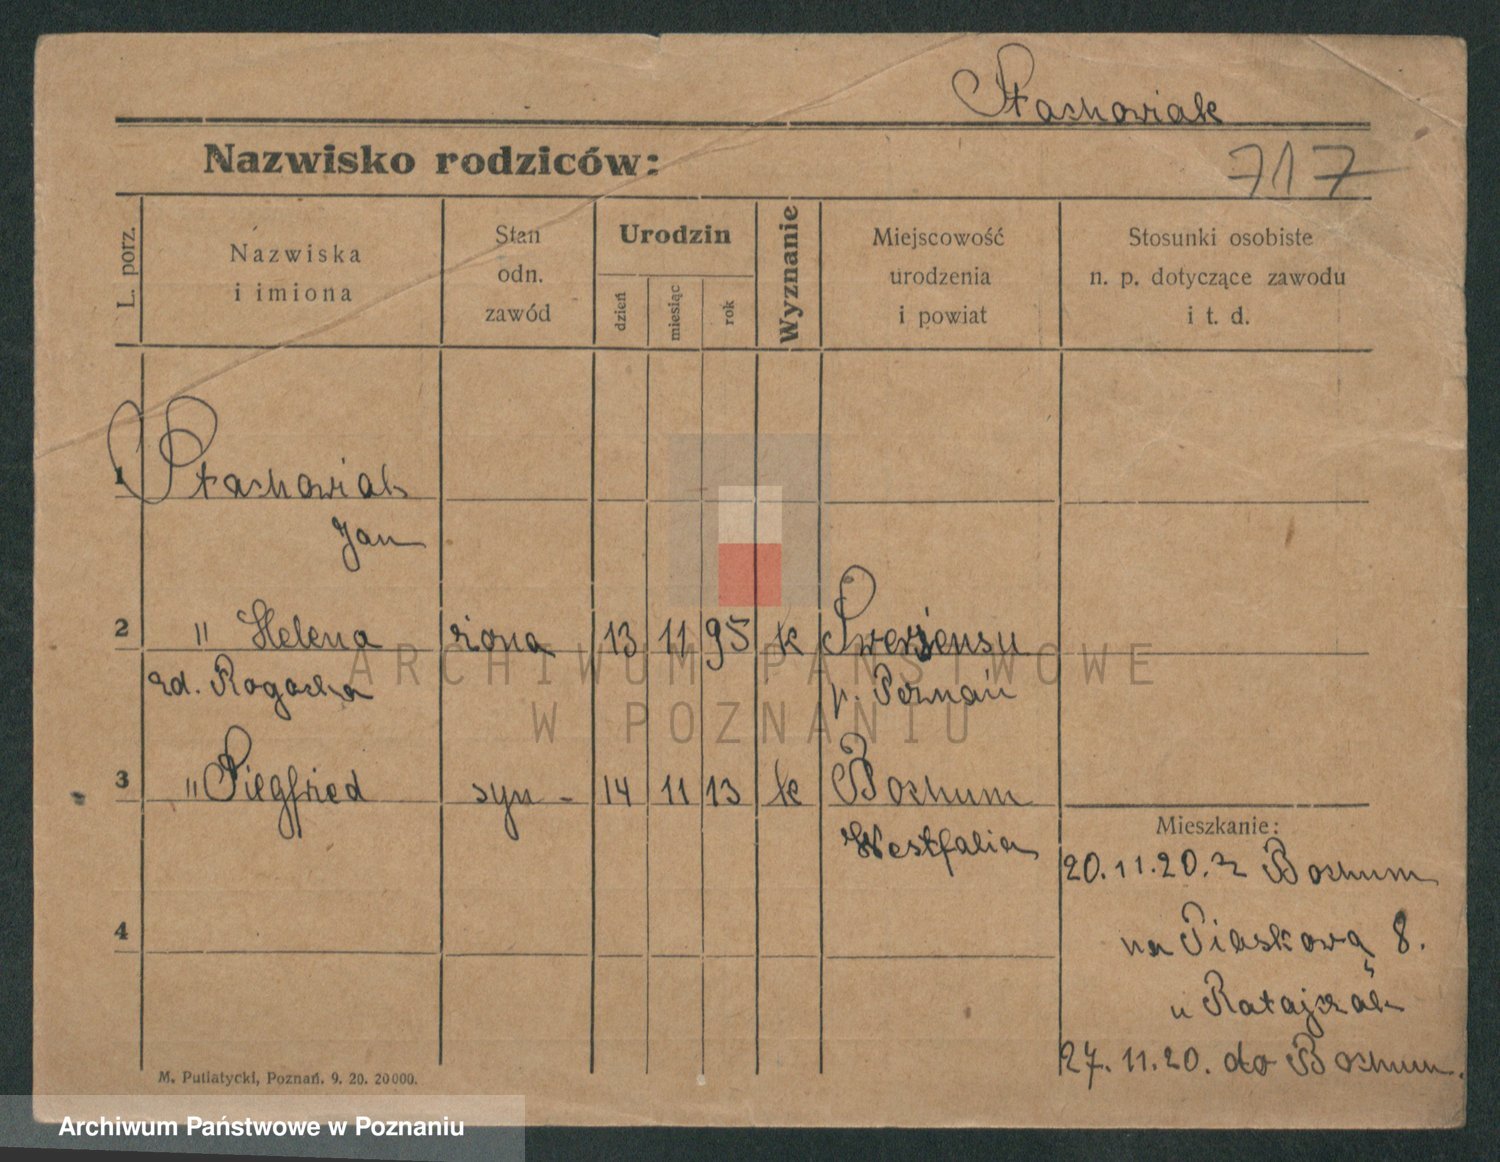 Stachowiak
Nazwisko rodziców:
717
L. porz.
Nazwiska
i imiona
Stan
odn.
zawód
Urodzin
dzień
miesiąc
rok
Wyznanie
Miejscowość
urodzenia
i powiat
Stosunki osobiste
n. p. dotyczące zawodu
i t. d.
1 Stachowiak
Jan
2 " Helena żona 13 11 95 k Swersensu
zd. Rogoska p. Poznań
3 " Siegfried syn - 14 11 13 k Bochum
Westfalia
Mieszkanie:
20.11.20. z Bochum
na Piaskową 8.
u Ratajczak
27.11.20. do Bochum.
4
M. Putiatycki, Poznań. 9. 20. 20000.
ARCHIWUM PAŃSTWOWE
W POZNANIU
Archiwum Państwowe w Poznaniu